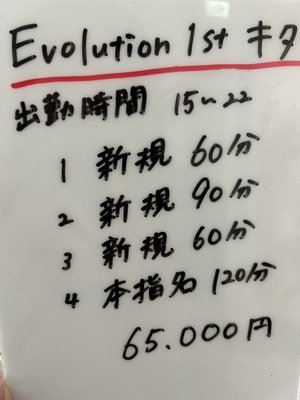 Evolution 1st キタ
出勤時間 15~22
1 新規 60分
2 新規 90分
3 新規 60分
4 本指名 120分
65.000円